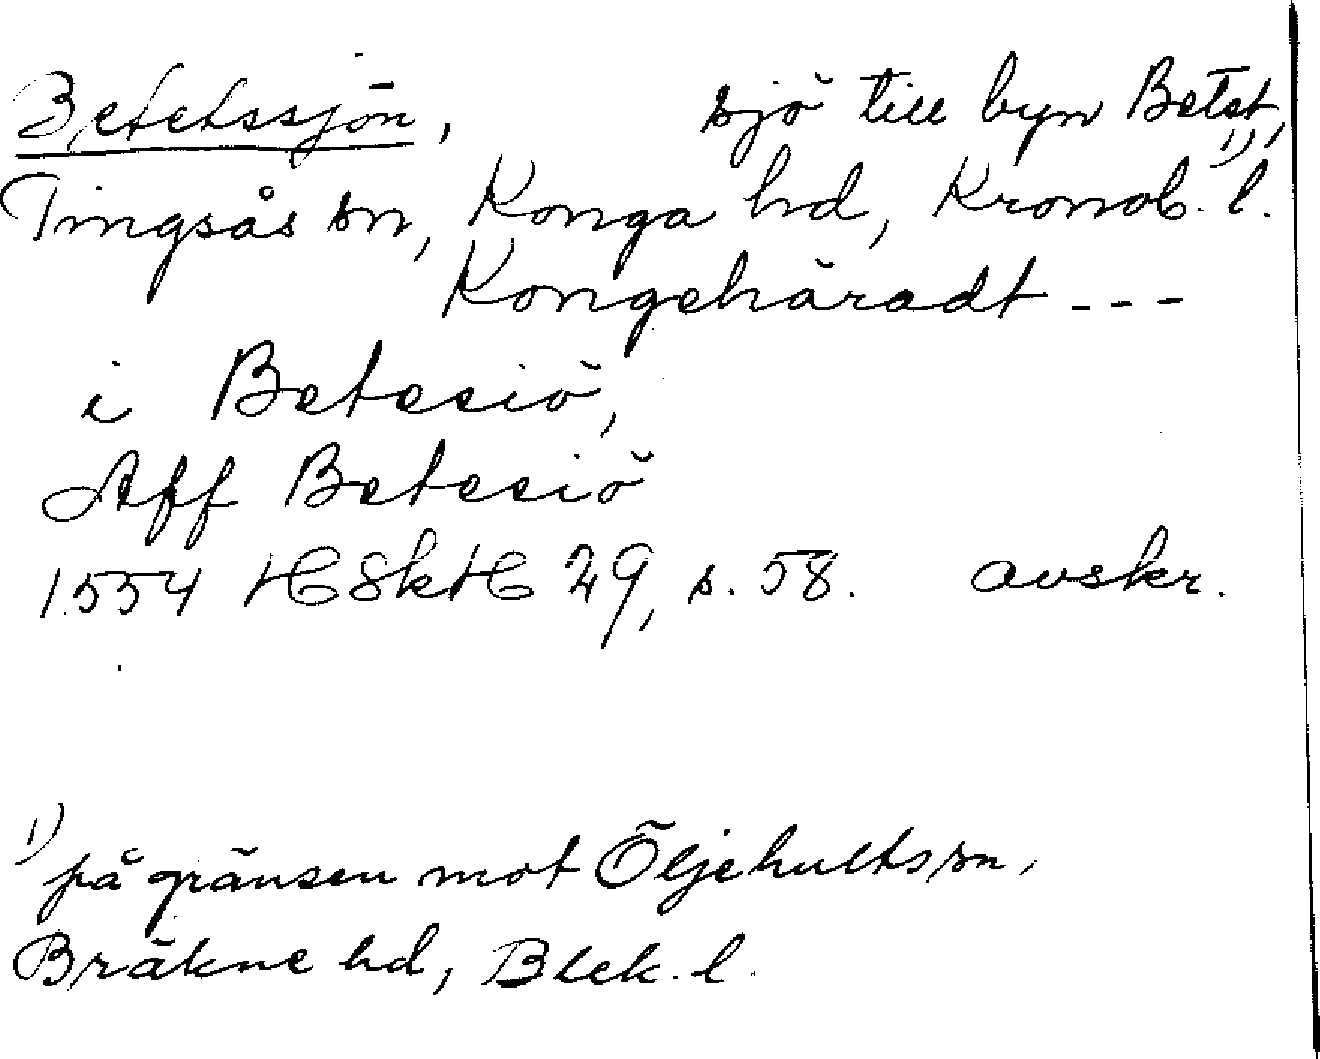 Betetssjön, sjö till byn Betet,
Tingsås sn, Konga hd, Kronob. l. 1)
Kongehäradt ---
i Betesiö,
Aff Betesiö
1554 HSkH 29, s. 58. avskr.
1) på gränsen mot Öljehults sn,
Bräkne hd, Blek. l.